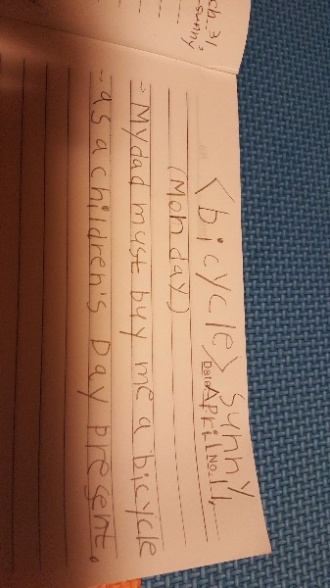 ob, 31,
sunny,
<bicycle> sunny,
Date April No. 11,
(Monday)
- My dad must buy me a bicycle
- as a children's Day present.